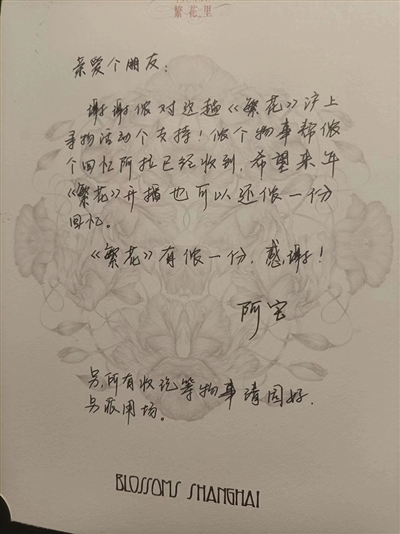 繁花里
亲爱个朋友：
谢谢侬对这趟《繁花》沪上
寻物活动个支持！侬个物事帮侬
个回忆阿拉已经收到，希望来年
《繁花》开播也可以还侬一份
回忆。
《繁花》有侬一份，感谢！
阿宝
另，所有收讫等物事请园好，
另派用场。
BLOSSOMS SHANGHAI